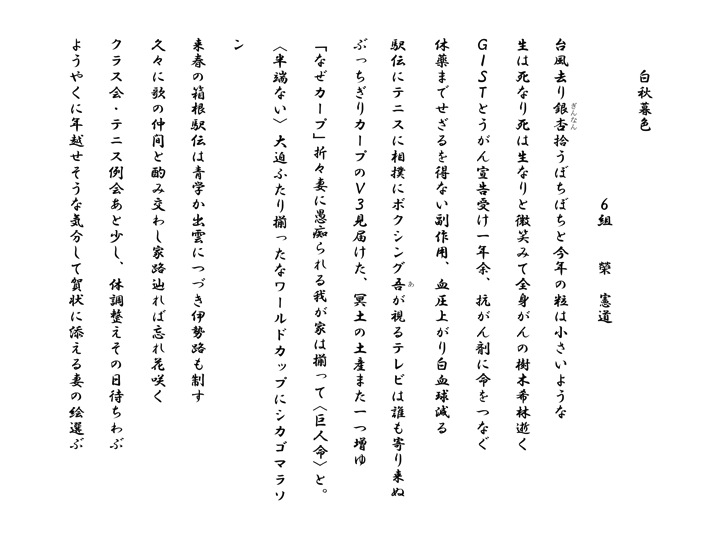 白秋暮色
6組 榮 憲道
台風去り銀杏拾うぱちぱちと今年の粒は小さいような
生は死なり死は生なりと微笑みて全身がんの樹木希林逝く
GISTとうがん宣告受け一年余、抗がん剤に命をつなぐ
休薬までせざるを得ない副作用、血圧上がり白血球減る
駅伝にテニスに相撲にボクシング吾が視るテレビは誰も寄り来ぬ
ぶっちぎりカープのV3見届けた、冥土の土産また一つ増ゆ
「なぜカープ」折々妻に愚痴られる我が家は揃って〈巨人命〉と。
〈半端ない〉大迫ふたり揃ったなワールドカップにシカゴマラソ
ン
来春の箱根駅伝は青学か出雲につづき伊勢路も制す
久々に歌の仲間と酌み交わし家路辿れば忘れ花咲く
クラス会・テニス例会あと少し、体調整えその日待ちわぶ
ようやくに年越せそうな気分して賀状に添える妻の絵選ぶ